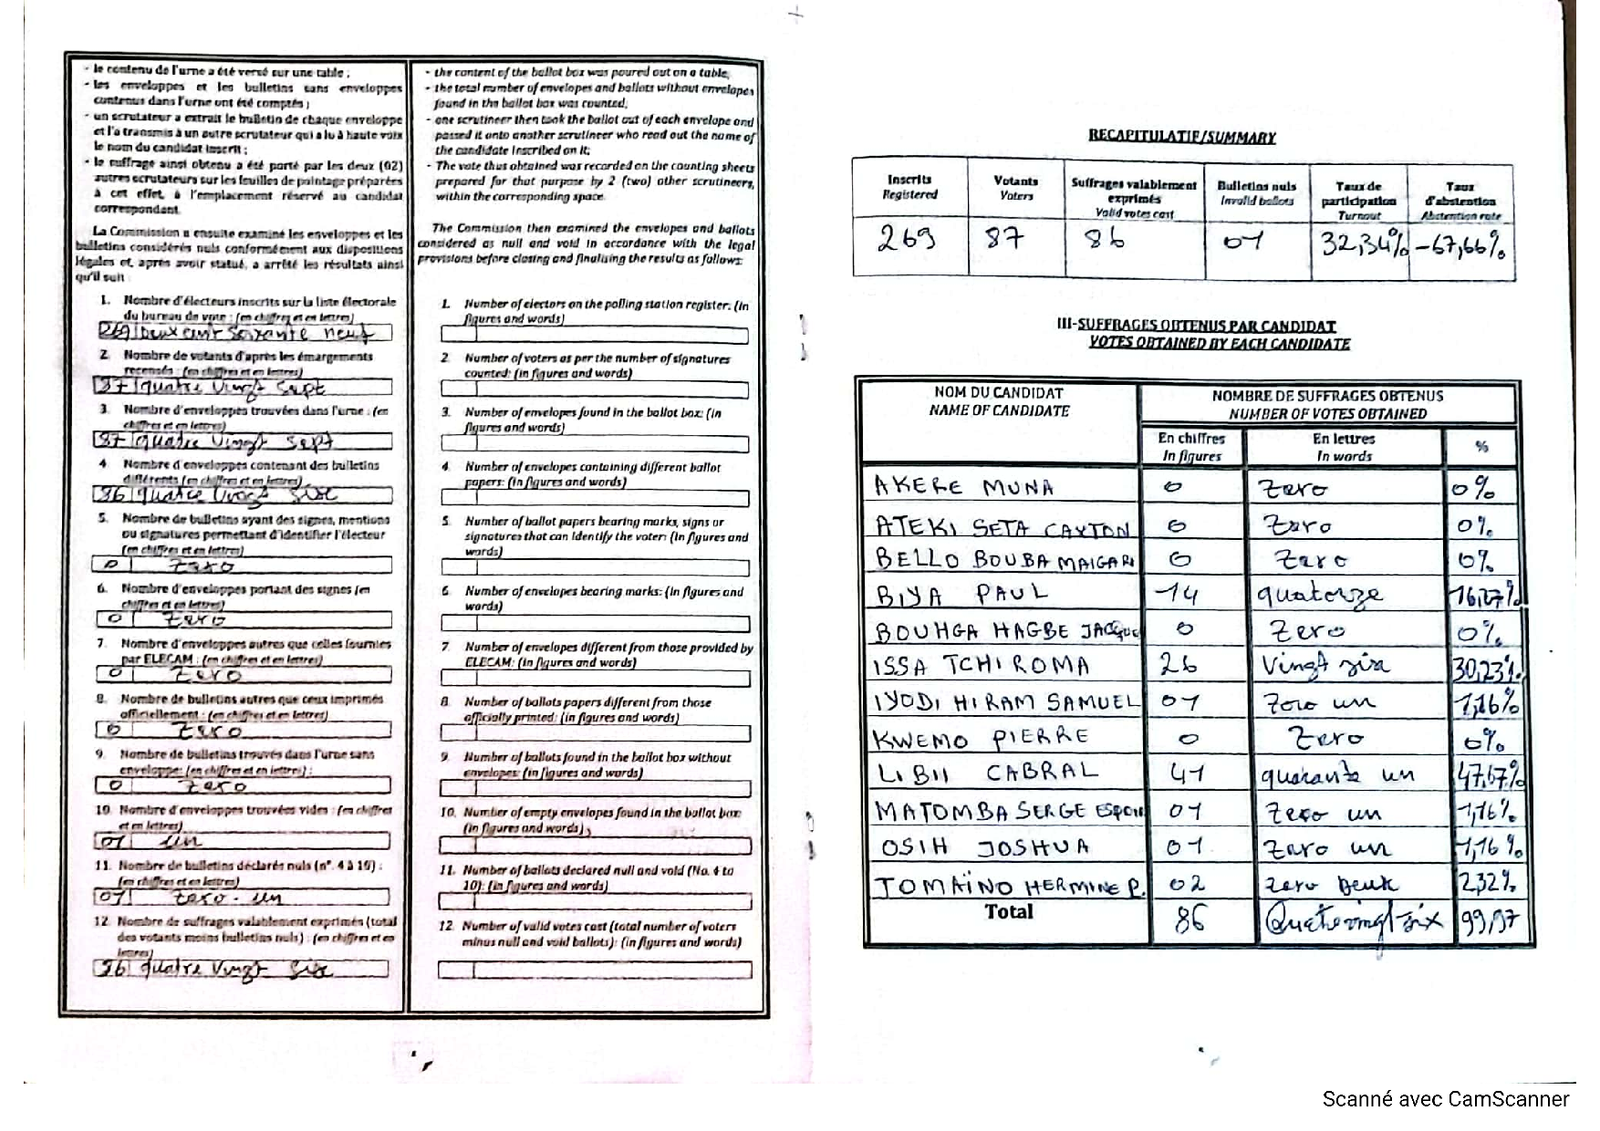 - le contenu de l'urne a été versé sur une table ;
- les enveloppes et les bulletins sans enveloppes
contenus dans l'urne ont été comptés ;
- un scrutateur a extrait le bulletin de chaque enveloppe
et l'a transmis à un autre scrutateur qui a lu à haute voix
le nom du candidat inscrit ;
- le suffrage ainsi obtenu a été porté par les deux (02)
autres scrutateurs sur les feuilles de pointage préparées
à cet effet, à l'emplacement réservé au candidat
correspondant.
La Commission a ensuite examiné les enveloppes et les
bulletins considérés nuls conformément aux dispositions
légales et, après avoir statué, a arrêté les résultats ainsi
qu'il suit :
1. Nombre d'électeurs inscrits sur la liste électorale
du bureau de vote : (en chiffres et en lettres)
269 Deux cent soixante neuf
2. Nombre de votants d'après les émargements
recensés : (en chiffres et en lettres)
87 quatre vingt sept
3. Nombre d'enveloppes trouvées dans l'urne : (en
chiffres et en lettres)
87 quatre vingt sept
4. Nombre d'enveloppes contenant des bulletins
différents : (en chiffres et en lettres)
86 quatre vingt six
5. Nombre de bulletins ayant des signes, mentions
ou signatures permettant d'identifier l'électeur
(en chiffres et en lettres)
0 Zero
6. Nombre d'enveloppes portant des signes (en
chiffres et en lettres)
0 Zero
7. Nombre d'enveloppes autres que celles fournies
par ELECAM : (en chiffres et en lettres)
0 Zero
8. Nombre de bulletins autres que ceux imprimés
officiellement : (en chiffres et en lettres)
0 Zero
9. Nombre de bulletins trouvés dans l'urne sans
enveloppe: (en chiffres et en lettres) :
0 Zero
10. Nombre d'enveloppes trouvées vides : (en chiffres
et en lettres)
01 un
11. Nombre de bulletins déclarés nuls (n°. 4 à 10) :
(en chiffres et en lettres)
01 zero un
12. Nombre de suffrages valablement exprimés (total
des votants moins bulletins nuls) : (en chiffres et en
lettres)
86 quatre vingt six
- the content of the ballot box was poured out on a table;
- the total number of envelopes and ballots without envelopes
found in the ballot box was counted;
- one scrutineer then took the ballot out of each envelope and
passed it onto another scrutineer who read out the name of
the candidate inscribed on it;
- The vote thus obtained was recorded on the counting sheets
prepared for that purpose by 2 (two) other scrutineers,
within the corresponding space.
The Commission then examined the envelopes and ballots
considered as null and void in accordance with the legal
provisions before closing and finalising the results as follows:
1. Number of electors on the polling station register: (in
figures and words)
2. Number of voters as per the number of signatures
counted: (in figures and words)
3. Number of envelopes found in the ballot box: (in
figures and words)
4. Number of envelopes containing different ballot
papers: (in figures and words)
5. Number of ballot papers bearing marks, signs or
signatures that can identify the voter: (in figures and
words)
6. Number of envelopes bearing marks: (in figures and
words)
7. Number of envelopes different from those provided by
ELECAM: (in figures and words)
8. Number of ballots papers different from those
officially printed: (in figures and words)
9. Number of ballots found in the ballot box without
envelopes: (in figures and words)
10. Number of empty envelopes found in the ballot box:
(in figures and words)
11. Number of ballots declared null and void (No. 4 to
10): (in figures and words)
12. Number of valid votes cast (total number of voters
minus null and void ballots): (in figures and words)
RECAPITULATIF/SUMMARY
Inscrits Registered | Votants Voters | Suffrages valablement exprimés Valid votes cast | Bulletins nuls Invalid ballots | Taux de participation Turnout | Taux d'abstention Abstention rate
269 87 86 01 32,34% -67,66%
III-SUFFRAGES OBTENUS PAR CANDIDAT
VOTES OBTAINED BY EACH CANDIDATE
NOM DU CANDIDAT NOMBRE DE SUFFRAGES OBTENUS
NAME OF CANDIDATE NUMBER OF VOTES OBTAINED
En chiffres En lettres %
In figures In words
AKERE MUNA 0 Zero 0%
ATEKI SETA CAXTON 0 Zero 0%
BELLO BOUBA MAIGARI 0 Zero 0%
BIYA PAUL 14 quatorze 16,27%
BOUHGA HAGBE JACQUE 0 Zero 0%
ISSA TCHIROMA 26 Vingt six 30,23%
IYODI HIRAM SAMUEL 01 Zero un 1,16%
KWEMO PIERRE 0 Zero 0%
LIBII CABRAL 41 quarante un 47,67%
MATOMBA SERGE ESPOIR 01 Zero un 1,16%
OSIH JOSHUA 01 Zero un 1,16%
TOMAÏNO HERMINE P. 02 Zero Deux 2,32%
Total 86 Quatre vingt six 99,97
Scanné avec CamScanner